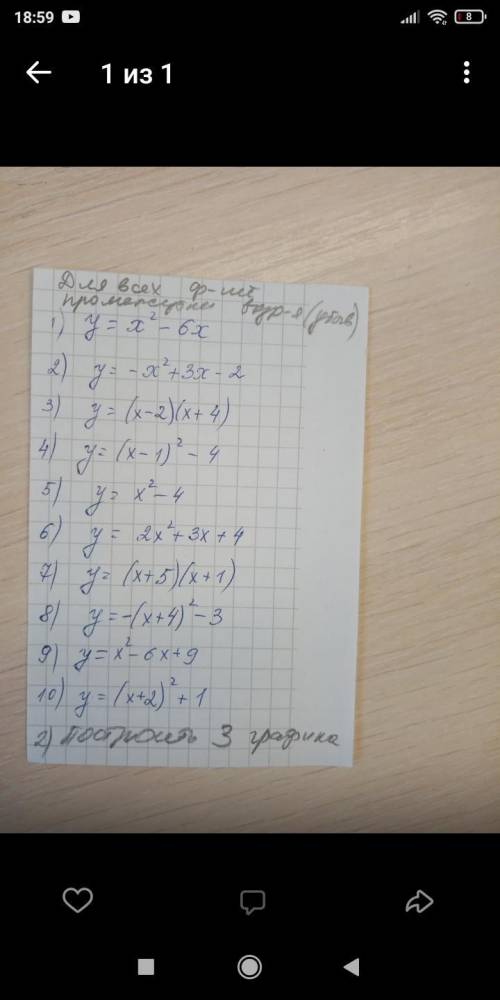 18:59
8
1 из 1
Для всех ф-ий
промежутки возр-я (убыв)
1) y = x² - 6x
2) y = -x² + 3x - 2
3) y = (x-2)(x+4)
4) y = (x-1)² - 4
5) y = x² - 4
6) y = 2x² + 3x + 4
7) y = (x+5)(x+1)
8) y = -(x+4)² - 3
9) y = x² - 6x + 9
10) y = (x+2)² + 1
2) Построить 3 графика